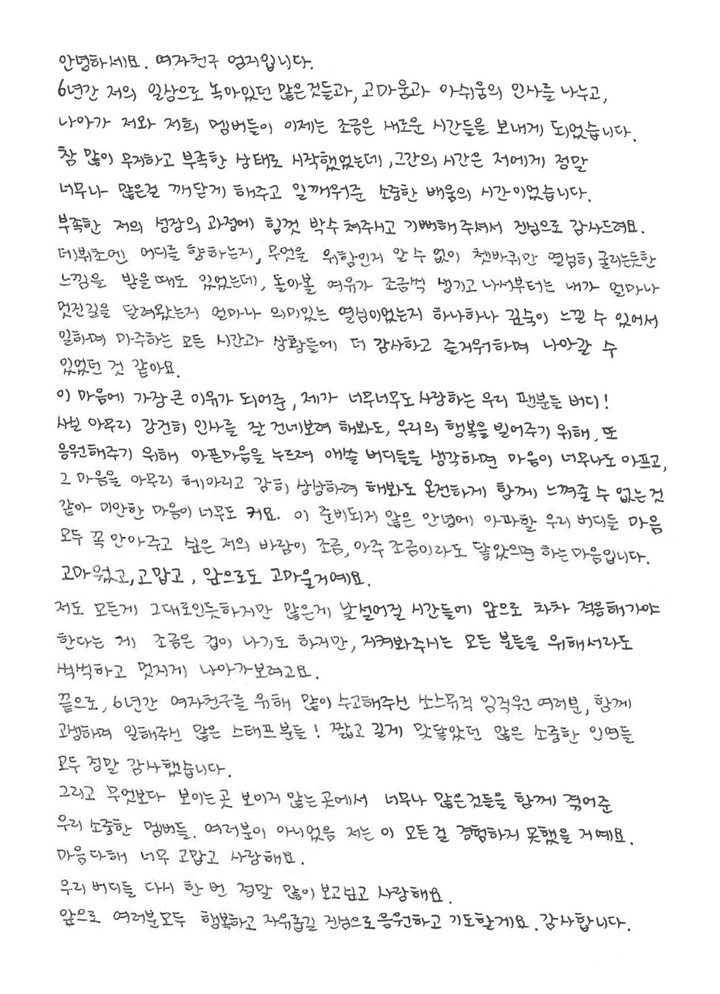 안녕하세요. 여자친구 엄지입니다.
6년간 저의 일상으로 녹아있던 많은것들과, 고마움과 아쉬움의 인사를 나누고,
나아가 저와 저희 멤버들이 이제는 조금은 새로운 시간들을 보내게 되었습니다.
참 많이 무지하고 부족한 상태로 시작했었는데, 그간의 시간은 저에게 정말
너무나 많은걸 깨닫게 해주고 일깨워준 소중한 배움의 시간이었습니다.
부족한 저의 성장의 과정에 힘껏 박수 쳐주시고 기뻐해 주셔서 진심으로 감사드려요.
데뷔초엔 어디를 향하는지, 무엇을 위함인지 알 수 없이 쳇바퀴만 열심히 굴리는듯한
느낌을 받을때도 있었는데, 돌아볼 여유가 조금씩 생기고 나서부터는 내가 얼마나
멋진길을 달려왔는지 얼마나 의미있는 열심이었는지 하나하나 깊숙이 느낄 수 있어서
일하며 마주하는 모든 시간과 상황들에 더 감사하고 즐거워하며 나아갈 수
있었던 것 같아요.
이 마음에 가장 큰 이유가 되어준, 제가 너무너무도 사랑하는 우리 팬분들 버디!
사실 아무리 강건히 인사를 잘 건네보려 해봐도, 우리의 행복을 빌어주기 위해, 또
응원해주기 위해 아픈마음을 누르며 애쓸 버디들을 생각하면 마음이 너무나도 아프고,
그 마음을 아무리 헤아리고 감히 상상하려 해봐도 온전하게 함께 느껴줄 수 없는것
같아 미안한 마음이 너무도 커요. 이 준비되지 않은 안녕에 아파할 우리 버디들 마음
모두 꼭 안아주고 싶은 저의 바람이 조금, 아주 조금이라도 닿았으면 하는 마음입니다.
고마웠고, 고맙고, 앞으로도 고마울거예요.
저도 모든게 그대로인듯하지만 많은게 낯설어질 시간들에 앞으로 차차 적응해가야
한다는 게 조금은 겁이 나기도 하지만, 지켜봐주시는 모든 분들을 위해서라도
씩씩하고 멋지게 나아가보려고요.
끝으로, 6년간 여자친구를 위해 많이 수고해주신 쏘스뮤직 임직원 여러분, 함께
고생하며 일해주신 많은 스태프분들! 짧고 길게 맞닿았던 많은 소중한 인연들
모두 정말 감사했습니다.
그리고 무엇보다 보이는곳 보이지 않는곳에서 너무나 많은것들을 함께 겪어준
우리 소중한 멤버들. 여러분이 아니었음 저는 이 모든걸 경험하지 못했을 거예요.
마음 다해 너무 고맙고 사랑해요.
우리 버디들 다시 한 번 정말 많이 보고싶고 사랑해요.
앞으로 여러분모두 행복하고 자유롭길 진심으로 응원하고 기도할게요. 감사합니다.